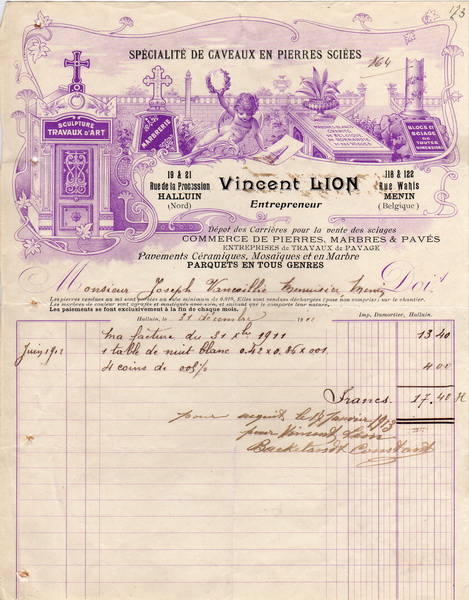 173
SPÉCIALITÉ DE CAVEAUX EN PIERRES SCIÉES
164
SCULPTURE
TRAVAUX D'ART
MARBRERIE
MARBRES BLANCS
GRANITS
DE BELGIQUE
DE NORMANDIE
ET DES VOSGES
BLOCS ET
SCIAGE
DE
TOUTES
DIMENSIONS
19 & 21
Rue de la Procession
HALLUIN
(Nord)
Vincent LION
Entrepreneur
118 & 122
Rue Wahis
MENIN
(Belgique)
Dépôt des Carrières pour la vente des sciages
COMMERCE DE PIERRES, MARBRES & PAVÉS
ENTREPRISES DE TRAVAUX DE PAVAGE
Pavements Céramiques, Mosaïques et en Marbre
PARQUETS EN TOUS GENRES
Monsieur Joseph Menuisier Menin Doit
Les pierres vendues au m3 sont portées au cube minimum de Elles sont vendues déchargées (pose non comprise) sur le chantier.
Les marbres de couleur sont agréés et mastiqués avec soin, et suivant que le comporte leur nature.
Les paiements se font exclusivement à la fin de chaque mois.
Halluin, le 31 décembre 191
Imp. Dumortier, Halluin.
ma facture du 31 Xbre 1911 13.40
Juin 1912 1 table de nuit blanc 0.42 x 0.36 x 001
4 coins de 4.00
Francs 17.40
pour acquit le 17 Janvier 1913
pour Vincent Lion
Backelandt Constant